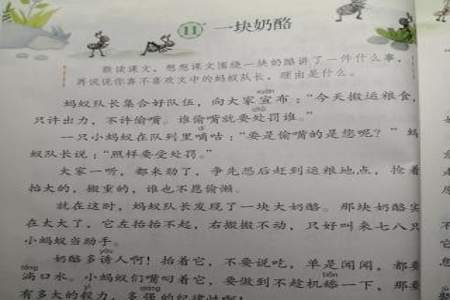 11 一块奶酪
默读课文，想想课文围绕一块奶酪讲了一件什么事，
再说说你喜不喜欢文中的蚂蚁队长，理由是什么。
xuān
蚂蚁队长集合好队伍，向大家宣布：“今天搬运粮食，
只许出力，不许偷嘴。谁偷嘴就要处罚谁。”
一只小蚂蚁在队列里嘀咕：“要是偷嘴的是您呢？”蚂
蚁队长说：“照样要受处罚。”
大家一听，都来劲了，争先恐后赶到运粮地点，抢着
抬大的，搬重的，谁也不愿偷懒。
就在这时，蚂蚁队长发现了一块大奶酪。那块奶酪实
在太大了，它左抬抬不起，右搬搬不动，只好叫来七八只
小蚂蚁当助手。
yòu
奶酪多诱人啊！抬着它，不要说吃，单是闻闻，都要
淌口水。小蚂蚁们嘴叼着它，要做到不趁机舔一下，那要
有多大的毅力，多强的纪律性啊！